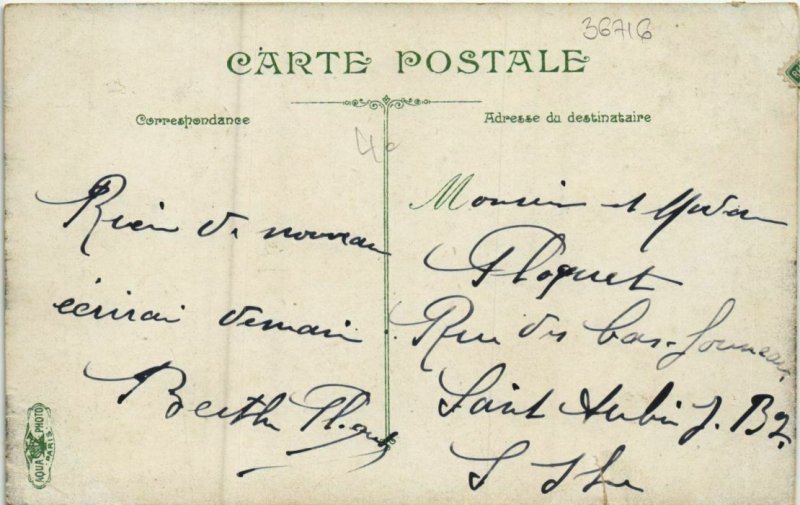 36716
CARTE POSTALE
Correspondance
Adresse du destinataire
40
Rien de nouveau
écrirai demain
Berthe Ploquet
Monsieur et Madame
Ploquet
Rue des bas-
Saint Aubin J. Bz.
S
AQUA PHOTO
PARIS